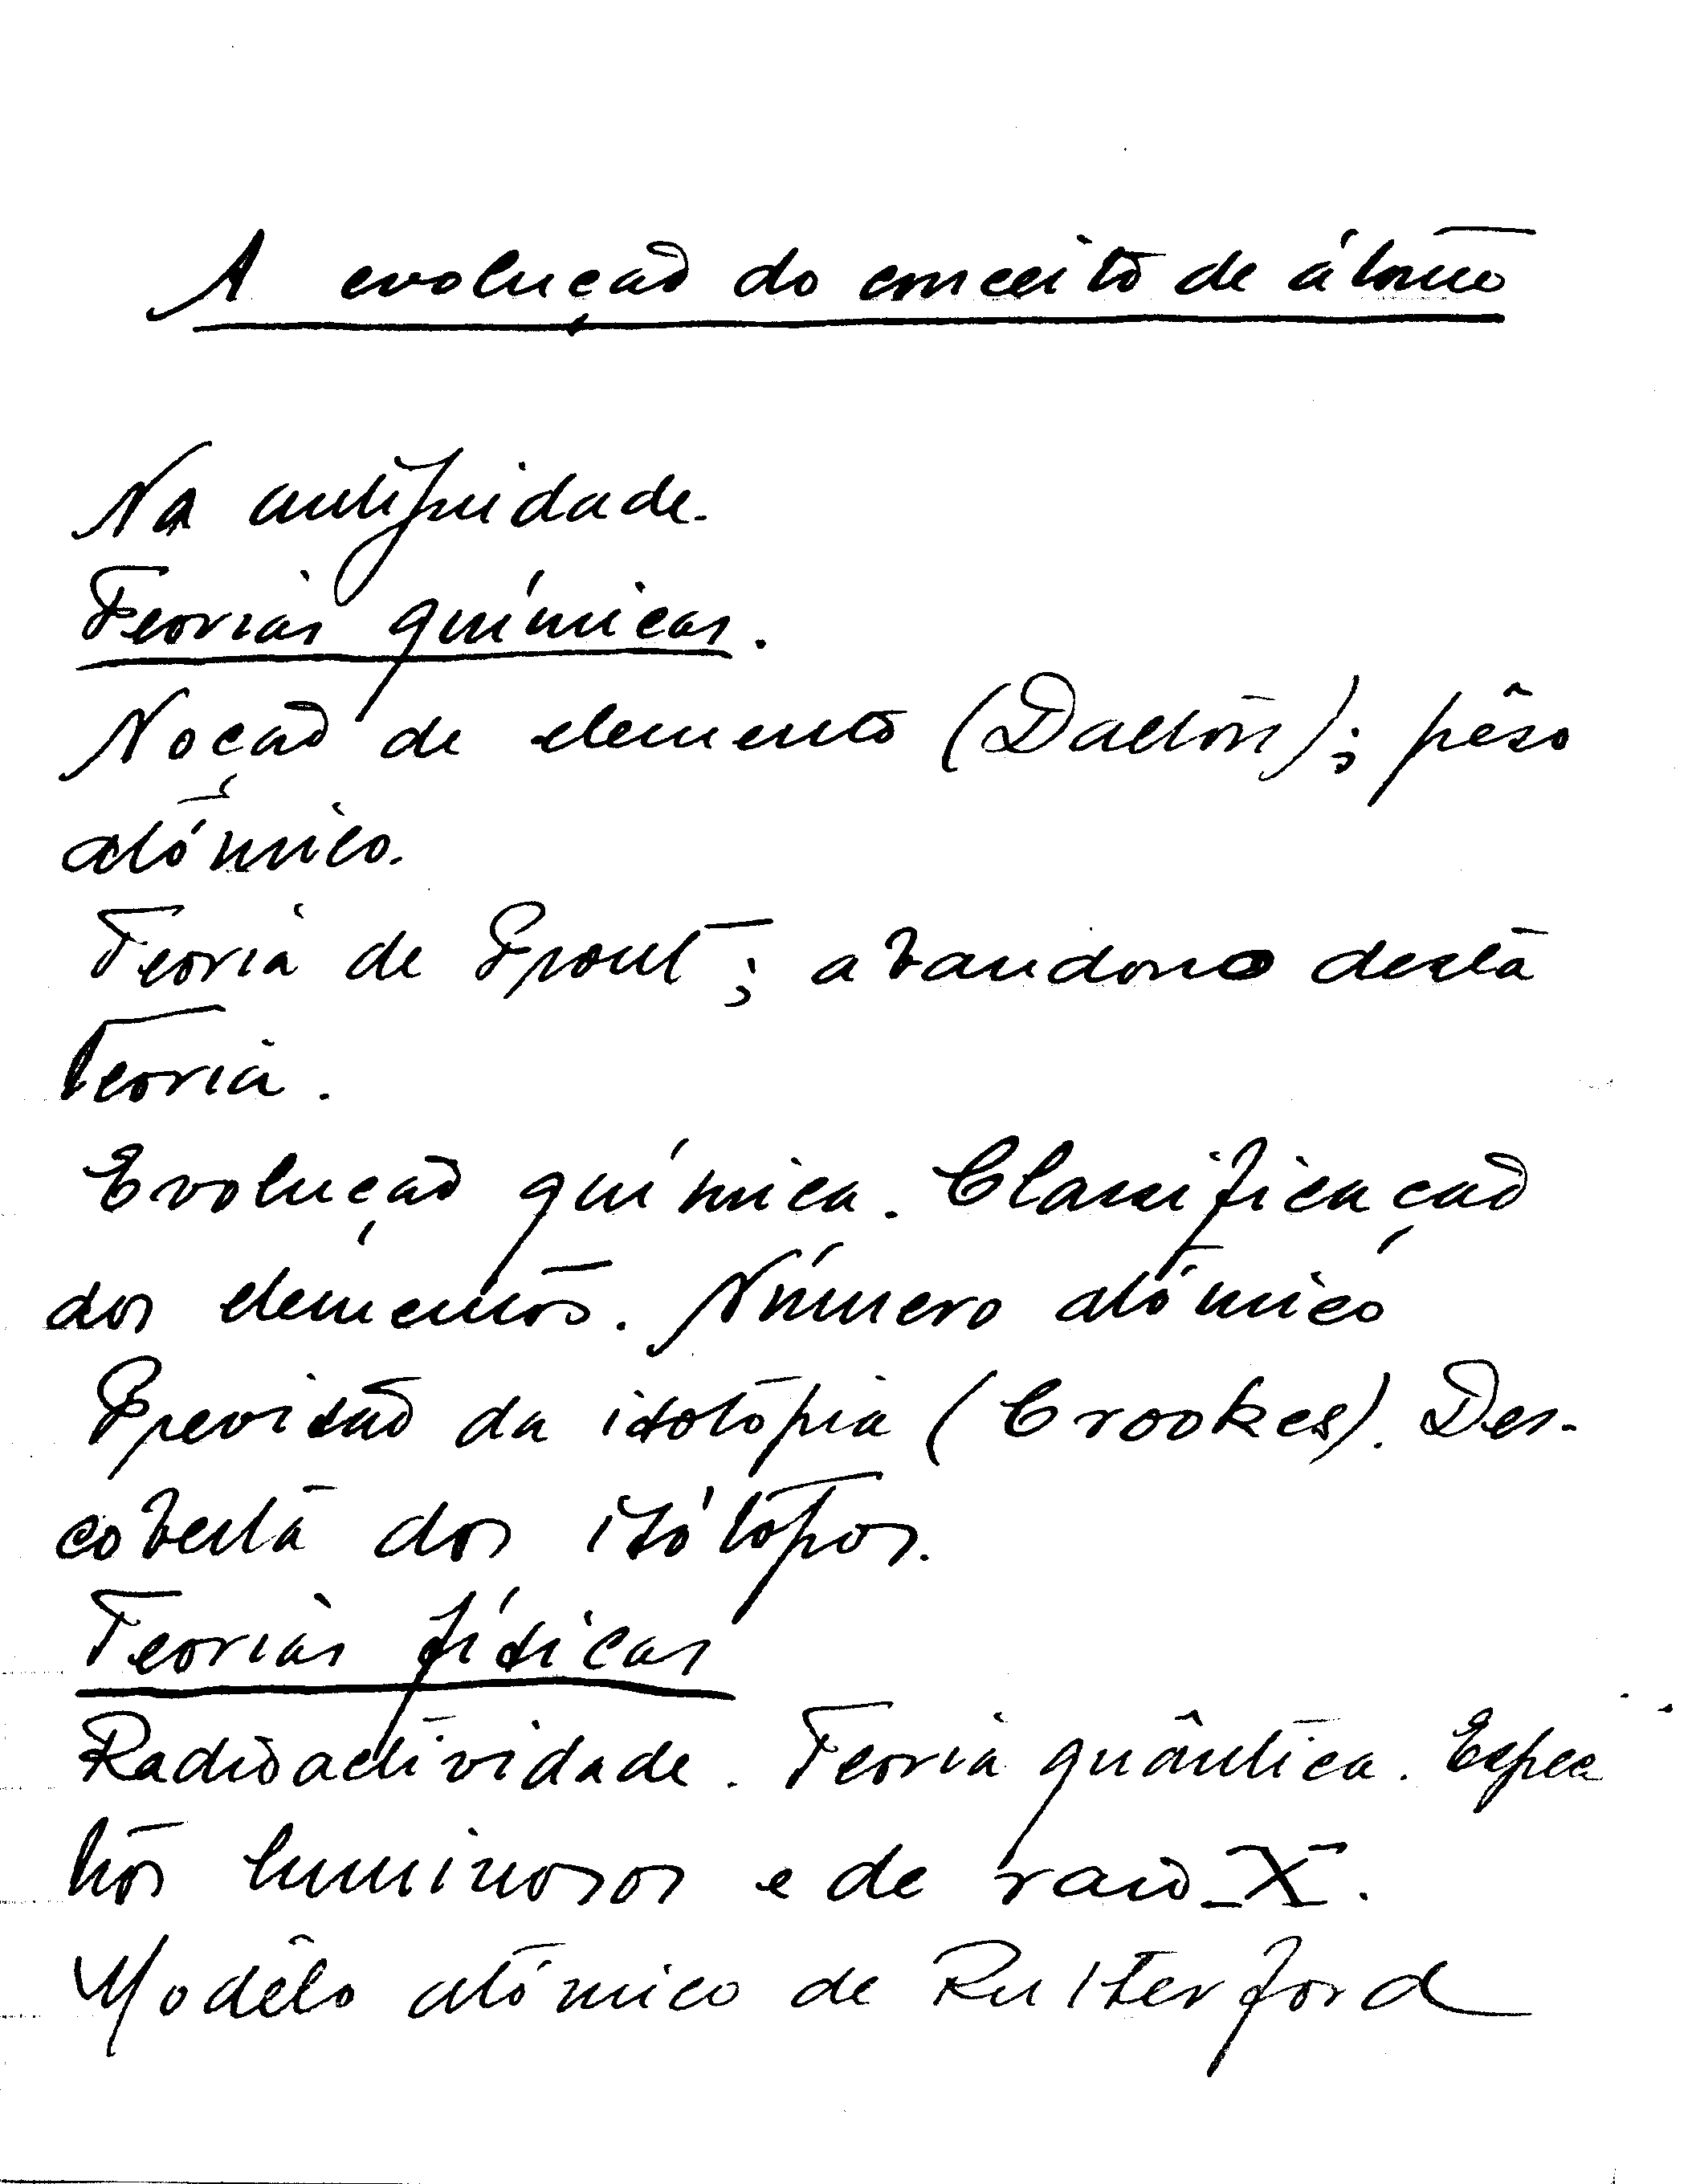 A evolução do conceito de átomo
Na antiguidade.
Teorias químicas.
Noção de elemento (Dalton); pêso
atómico.
Teoria de Prout; abandono desta
teoria.
Evolução química. Classificação
dos elementos. Número atómico
Previsão da isotopia (Crookes). Des-
coberta dos isótopos.
Teorias físicas
Radioactividade. Teoria quântica. Espec
tros luminosos e de raio X.
Modêlo atómico de Rutherford